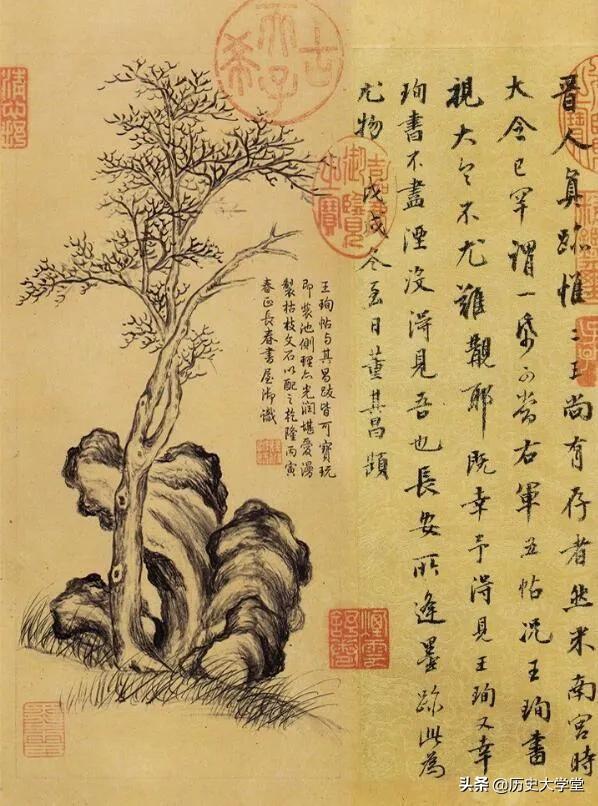 晉人真跡惟二王尚有存者然米南宮時
大令已罕謂一紙可當右軍五帖況王珣書
視大令不尤難覯耶既幸予得見王珣又幸
珣書不盡湮没得見吾也長安所逢墨跡此為
尤物 戊戌冬至日董其昌題
王珣帖与其昌跋皆可寶玩
即裝池側理亦光潤堪愛漫
製枯枝文石以配之乾隆丙寅
春正長春書屋御識
古希天子
嘉慶御覽之寶
头条 @历史大学堂